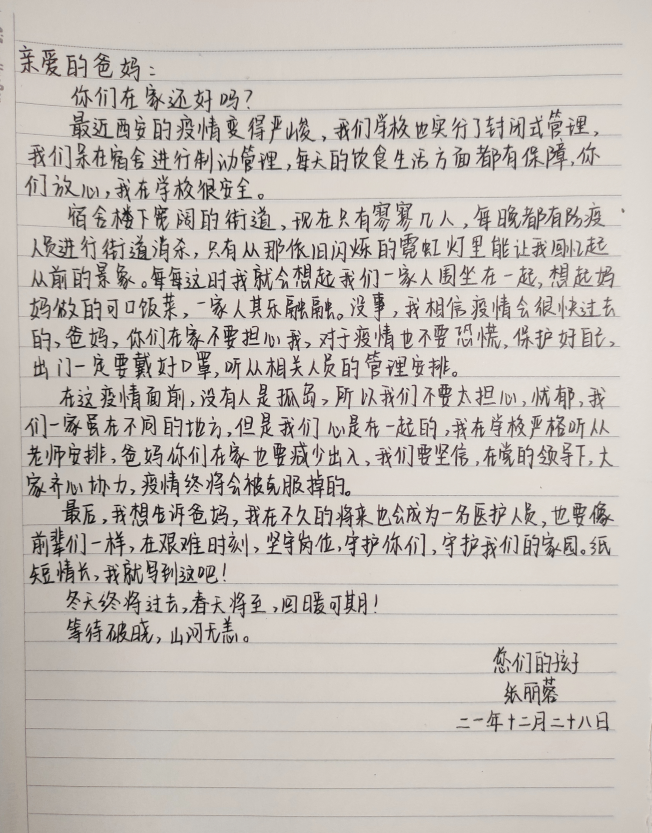 亲爱的爸妈：
你们在家还好吗？
最近西安的疫情变得严峻，我们学校也实行了封闭式管理，
我们呆在宿舍进行制动管理，每天的饮食生活方面都有保障，你
们放心，我在学校很安全。
宿舍楼下宽阔的街道，现在只有寥寥几人，每晚都有防疫
人员进行街道消杀，只有从那依旧闪烁的霓虹灯里能让我回忆起
从前的景象。每每这时我就会想起我们一家人围坐在一起，想起妈
妈做的可口饭菜，一家人其乐融融。没事，我相信疫情会很快过去
的，爸妈，你们在家不要担心我，对于疫情也不要恐慌，保护好自己，
出门一定要戴好口罩，听从相关人员的管理安排。
在这疫情面前，没有人是孤岛，所以我们不要太担心，忧郁，我
们一家虽在不同的地方，但是我们心是在一起的，我在学校严格听从
老师安排，爸妈你们在家也要减少出入，我们要坚信，在党的领导下，大
家齐心协力，疫情终将会被克服掉的。
最后，我想告诉爸妈，我在不久的将来也会成为一名医护人员，也要像
前辈们一样，在艰难时刻，坚守岗位，守护你们，守护我们的家园。纸
短情长，我就写到这吧！
冬天终将过去，春天将至，回暖可期！
等待破晓，山河无恙。
您们的孩子
张丽蓉
二一年十二月二十八日